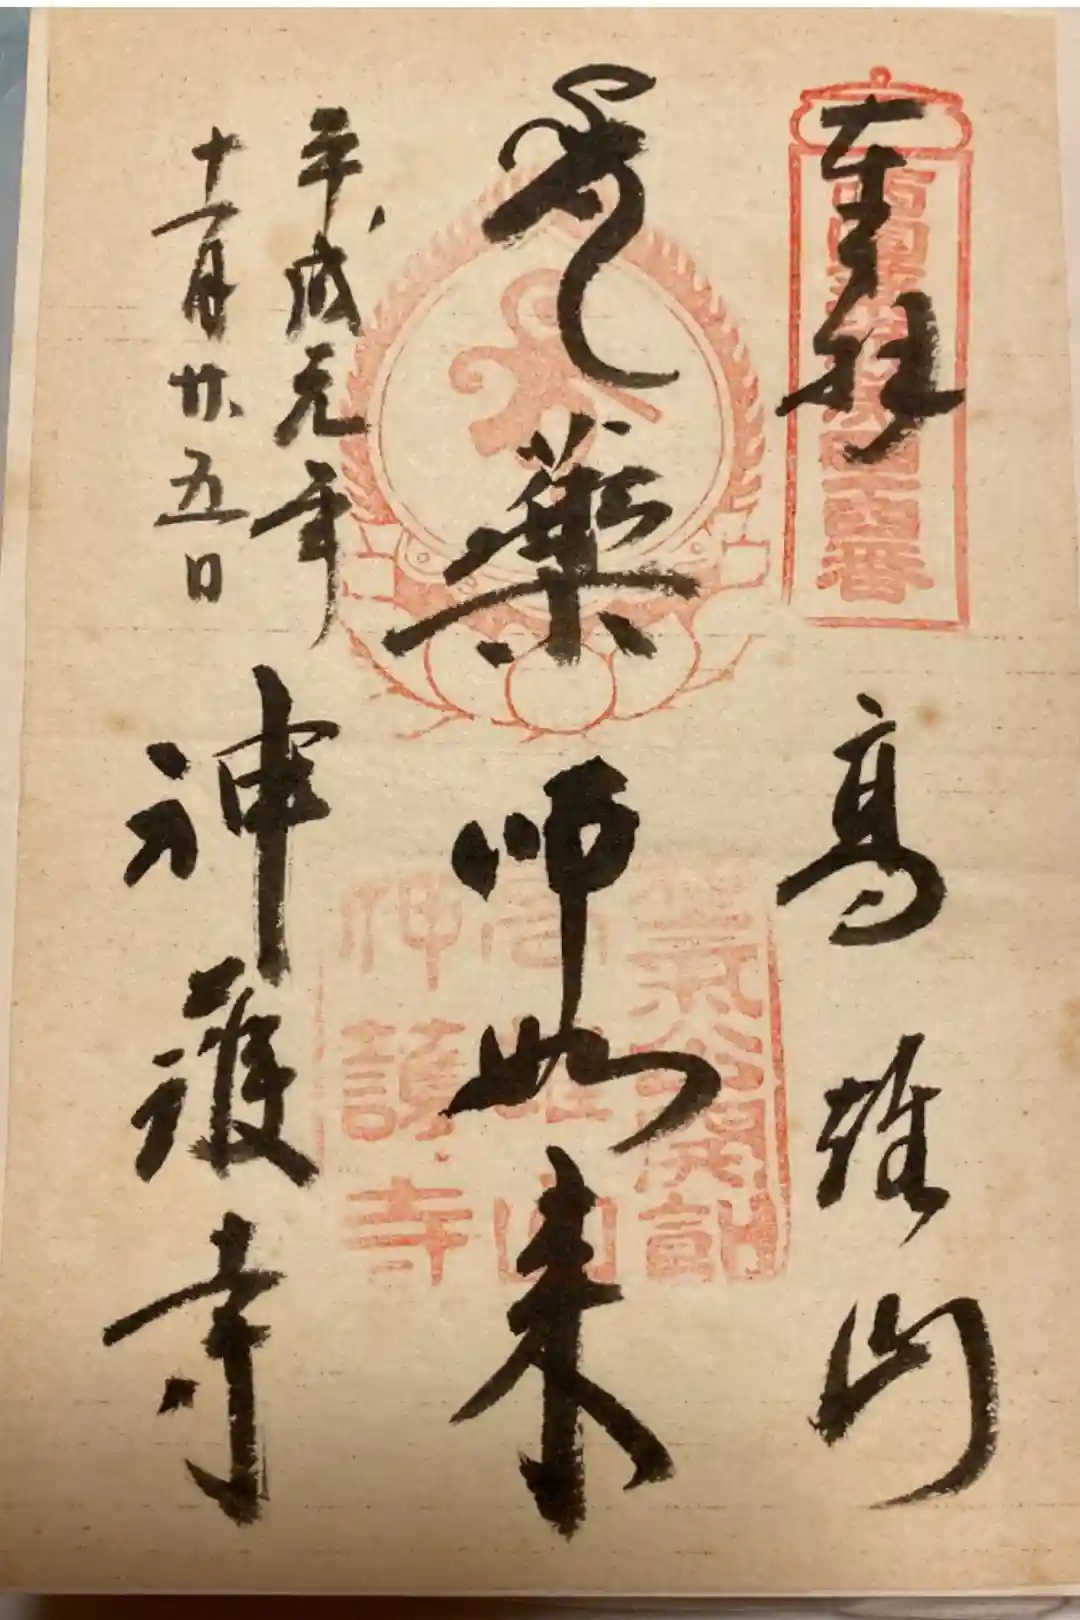 奉拝
高雄山
薬師如来
平成元年
十一月廿五日
神護寺
氣公開創
高雄山
神護寺